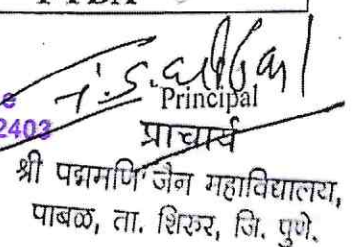 Principal
2403
प्राचार्य
श्री पद्ममणि जैन महाविद्यालय,
पाबळ, ता. शिरुर, जि. पुणे.